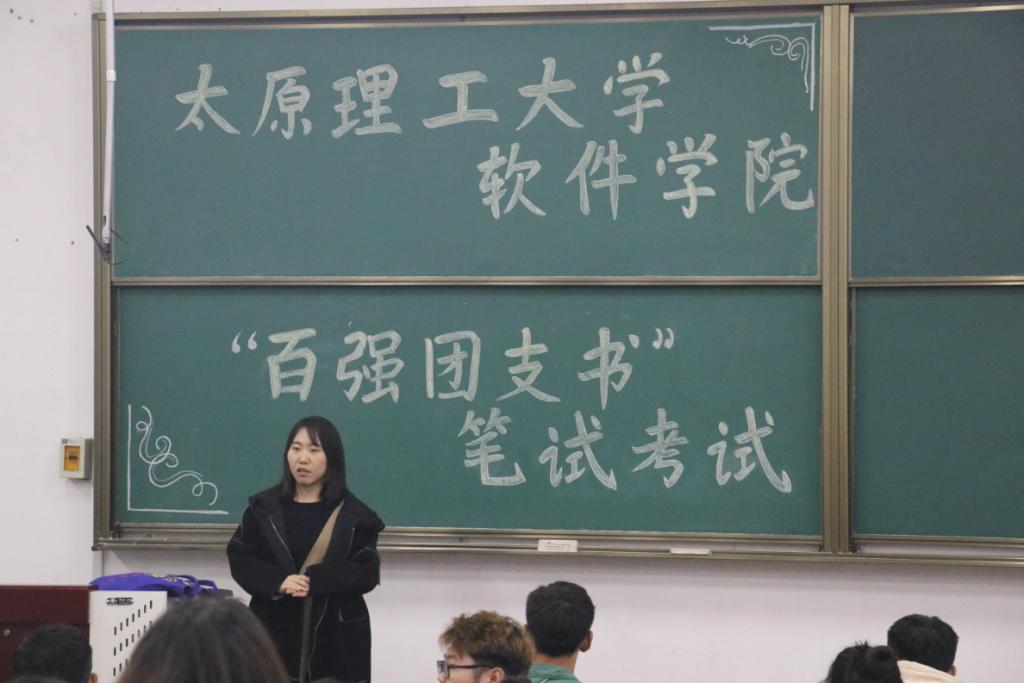 太原理工大学
软件学院
“百强团支书”
笔试考试